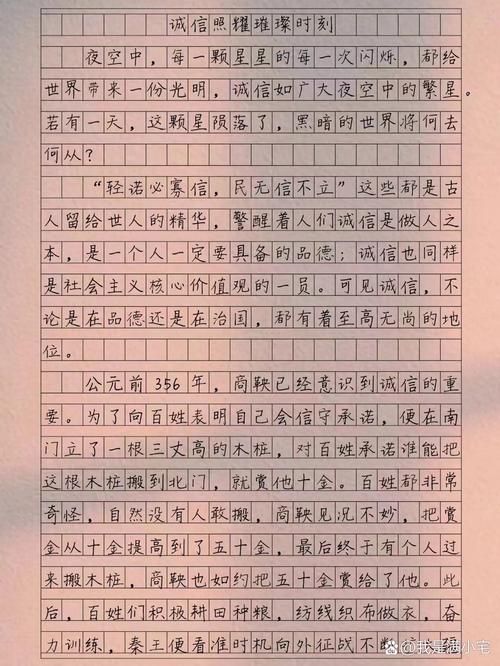 诚信照耀璀璨时刻
夜空中，每一颗星星的每一次闪烁，都给
世界带来一份光明，诚信如广大夜空中的繁星。
若有一天，这颗星陨落了，黑暗的世界将何去
何从？
“轻诺必寡信，民无信不立”这些都是古
人留给世人的精华，警醒着人们诚信是做人之
本，是一个人一定要具备的品德；诚信也同样
是社会主义核心价值观的一员。可见诚信，不
论是在品德还是在治国，都有着至高无尚的地
位。
公元前356年，商鞅已经意识到诚信的重
要。为了向百姓表明自己会信守承诺，便在南
门立了一根三丈高的木桩，对百姓承诺谁能把
这根木桩搬到北门，就赏他十金。百姓都非常
奇怪，自然没有人敢搬，商鞅见况不妙，把赏
金从十金提高到了五十金，最后终于有个人过
来搬木桩，商鞅也如约把五十金赏给了他。此
后，百姓们积极耕田种粮，纺线织布做衣，奋
力训练，秦王便看准时机向外征战不断
我是满小宅